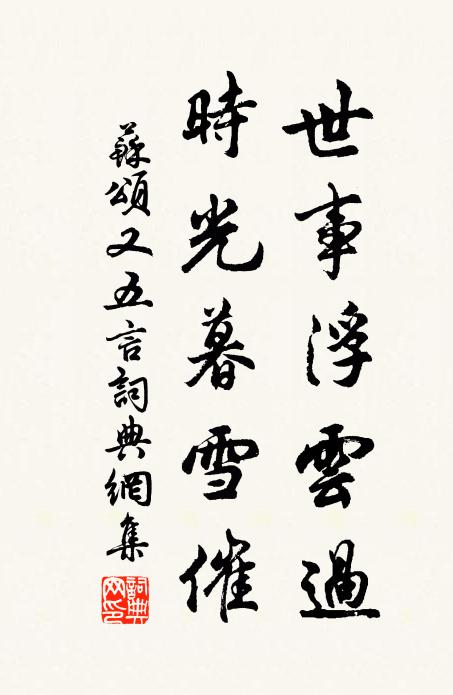 世事浮雲過
時光暮雪催
蘇頌又五言詞典網集
詞典
网印